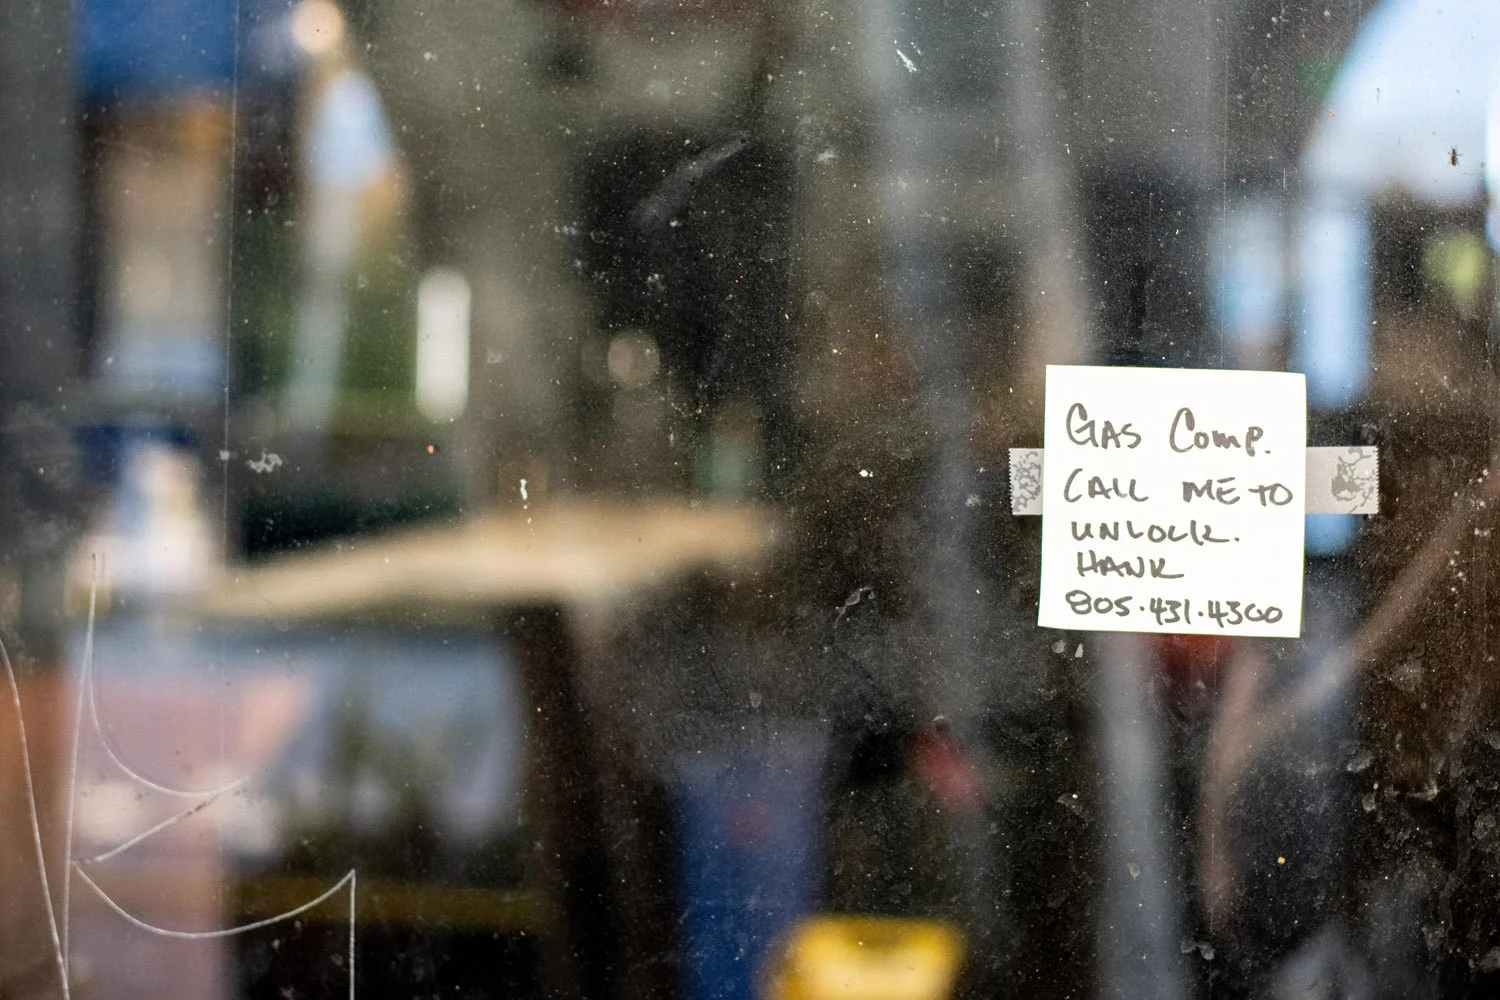 GAS COMP.
CALL ME TO
UNLOCK.
HANK
805.431.4300